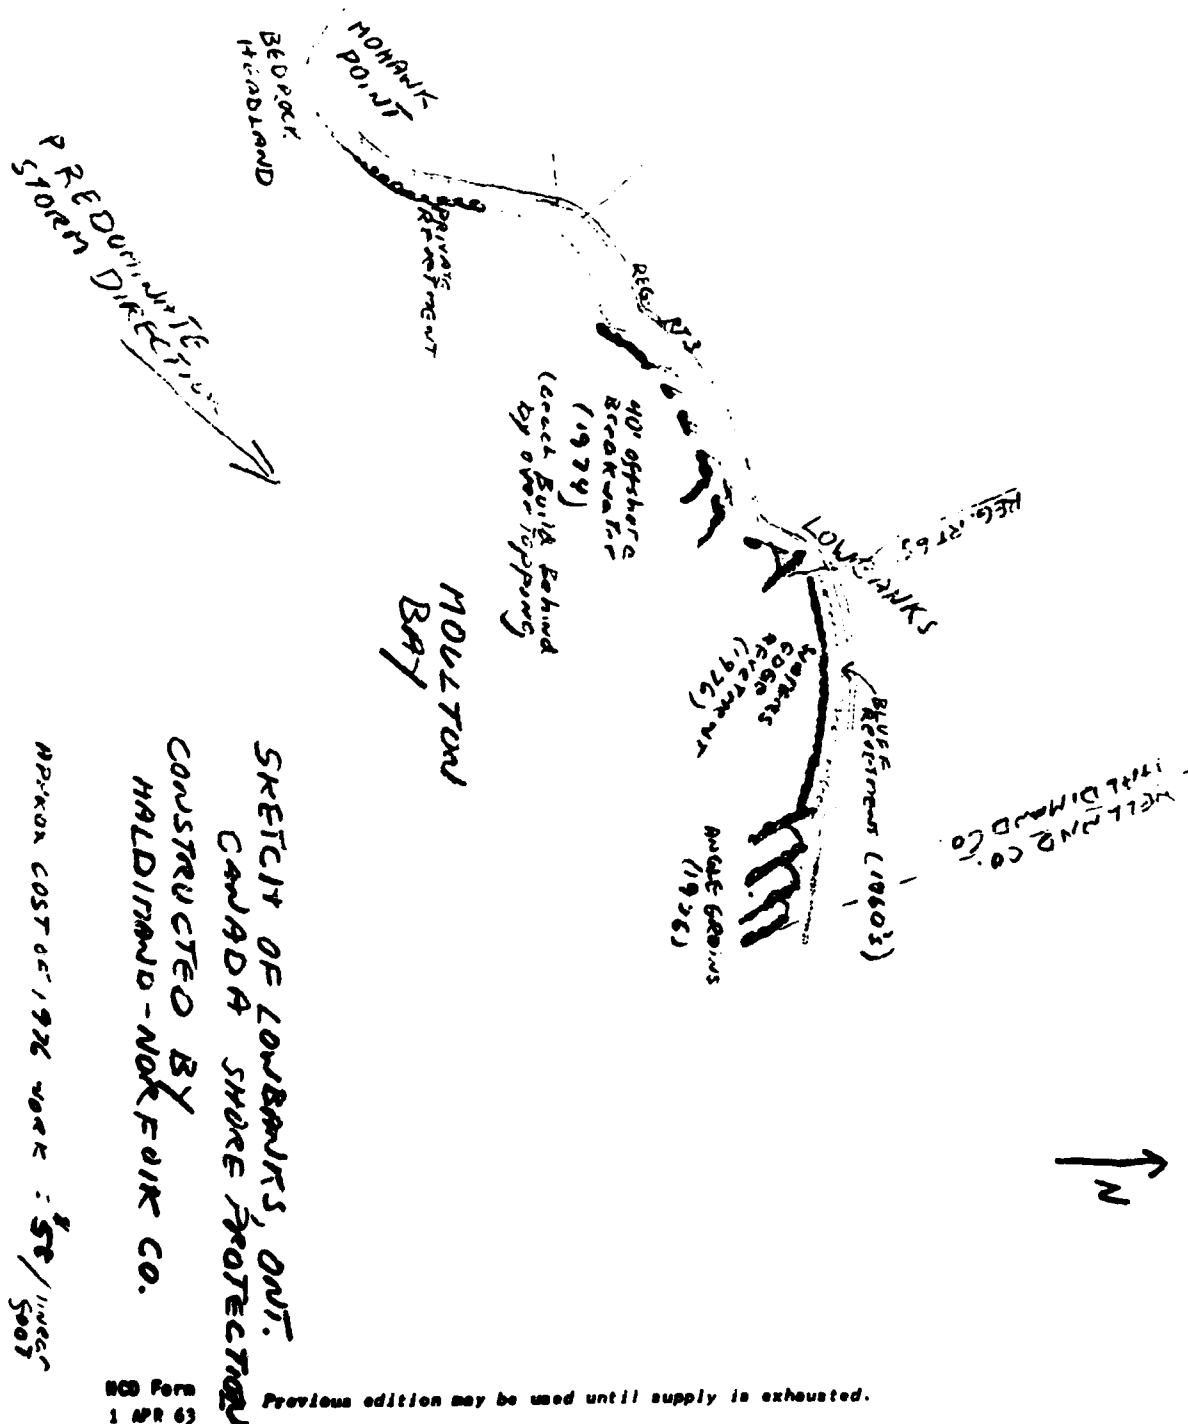 MOHAWK
POINT
BEDROCK
HEADLAND
PREDOMINATE
STORM DIRECTION
PRIVATE
REVETMENT
REG. RT 3
40' offshore
Breakwater
(1974)
(beach Build Behind
by overtopping
LOWBANKS
REG. RT 65
MOULTON
BAY
WATERS
EDGE
REVETMENT
(1976)
BLUFF
REVETMENT (1960's)
ANGLE GROINS
(1976)
WELLAND CO.
HALDIMAND CO
N
SKETCH OF LOWBANKS, ONT.
CANADA SHORE PROTECTION
CONSTRUCTED BY
HALDIMAND-NORFOLK CO.
APPROX COST OF 1976 WORK : $58/linear
foot
NCD Form
1 APR 63
Previous edition may be used until supply is exhausted.